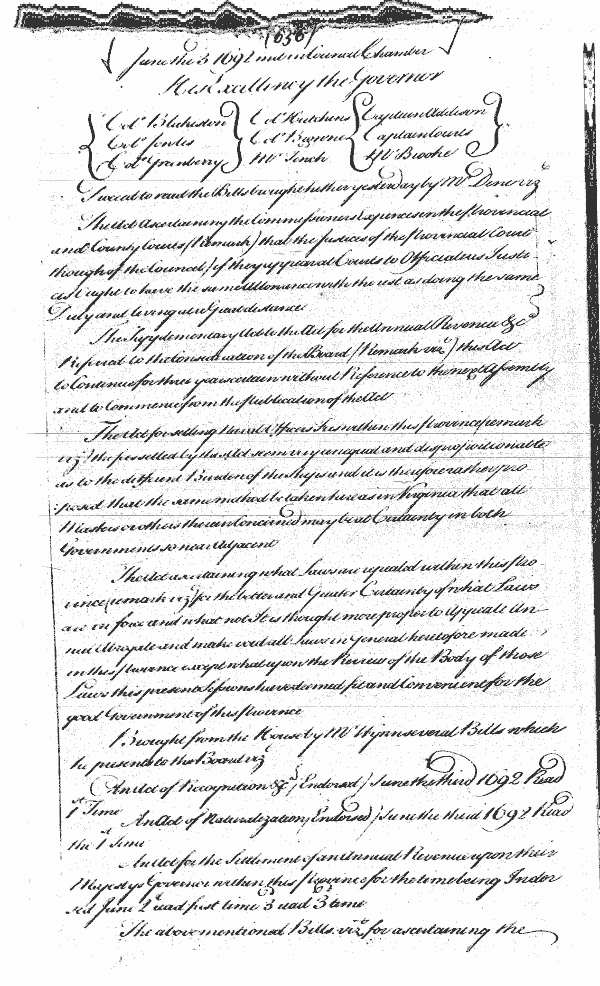 (656)
June the 3 1692 met in Council Chamber
His Excellency the Governor
Col.º Blakiston Col.º Hutchins Captain Addison
Col.º Jowles Col.º Browne Captain Courts
Col.º Granberry Mr Tench Mr Brooke
Proceed to read the Bills brought hither yesterday by Mr Dene viz
The Act Ascertaining the Commissioners Expences in the Provincial
and County Courts (Remark) that the Justices of the Provincial Court
though of the Council, if they appear at Courts to Officiate as Justi-
ces Ought to have the same Allowance with the rest as doing the same
Duty and living at a great distance.
The Supplementary Act to the Act for the Annual Revenue &c
Referred to the Consideration of the Board (Remark viz) this Act
to Continue for three years certain without Reference to the next Assembly
and to Commence from the Publication of the Act
The Act for settling Naval Officers Fees within this Province remark
viz the fees setled by this Act seem very unequal and disproportionable
as to the different Burden of the Ships and it is therefore as they pro
posed that the same method be taken here as in Virginia that all
Masters or others therein Concerned may be at Certainty in both
Governments so near Adjacent
The Act ascertaining what Laws are repealed within this Pro
vince, remark viz for the better and Greater Certainty of what Laws
are in force and what not It is thought more proper to Appeale An-
nul Abrogate and make void all Laws in General heretofore made
in this Province except what upon the Review of the Body of those
Laws this present Sessions have deemed fit and Convenient for the
good Government of this Province
Brought from the House by Mr Wynn several Bills which
he presents to the Board viz
An Act of Recognition &c, Endorsed / June the third 1692 Read
1st Time
An Act of Naturalization, Endorsed / June the third 1692 Read
the 1st Time
An Act for the Settlement of an Annual Revenue upon their
Majestys Governor within this Province for the time being Indor
sed June 2d read first time 3 read 3d time
The above mentioned Bills viz for ascertaining the